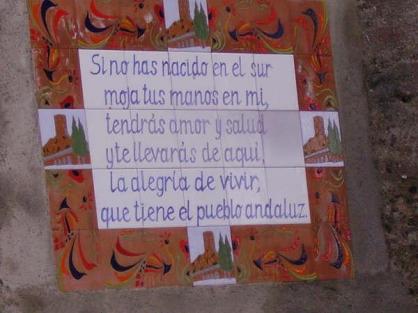 Si no has nacido en el sur
moja tus manos en mi,
tendrás amor y salud
y te llevarás de aqui,
la alegria de vivir,
que tiene el pueblo andaluz.